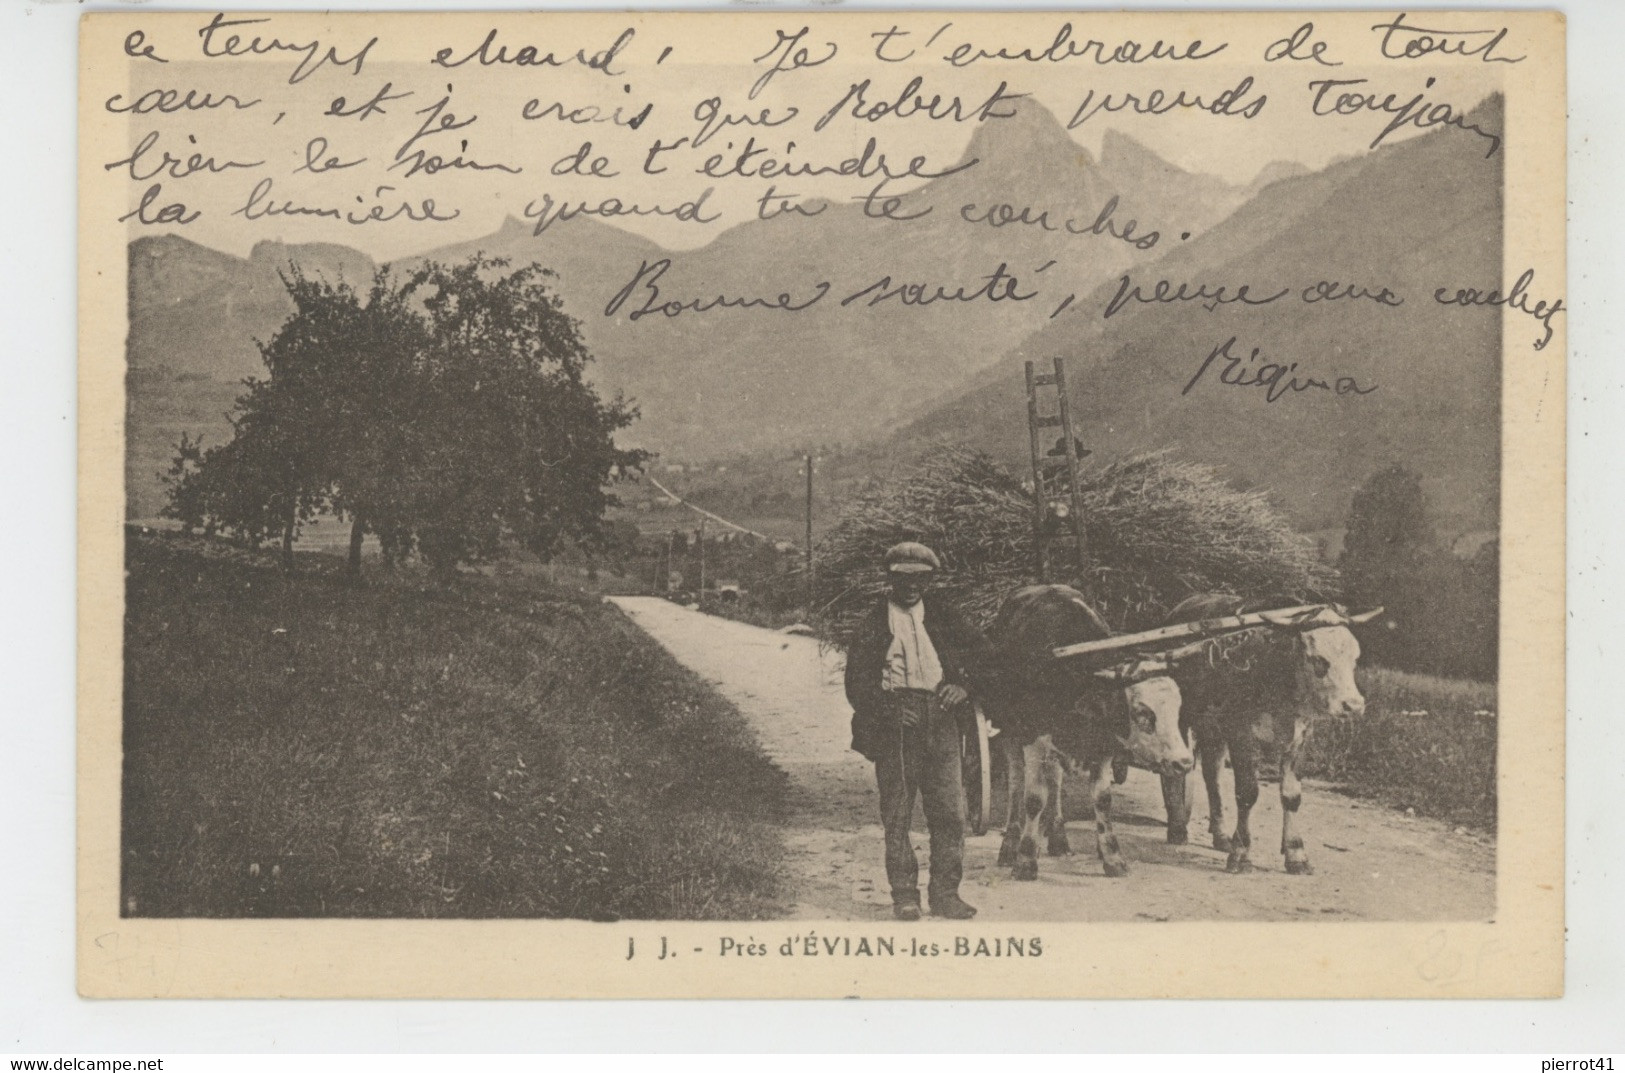 ce temps chaud, Je t'embrasse de tout
cœur, et je crois que Robert prends toujours
bien le soin de t'éteindre
la lumière quand tu te couches.
Bonne santé, pense aux cachets
J J. - Près d'ÉVIAN-les-BAINS
pierrot41